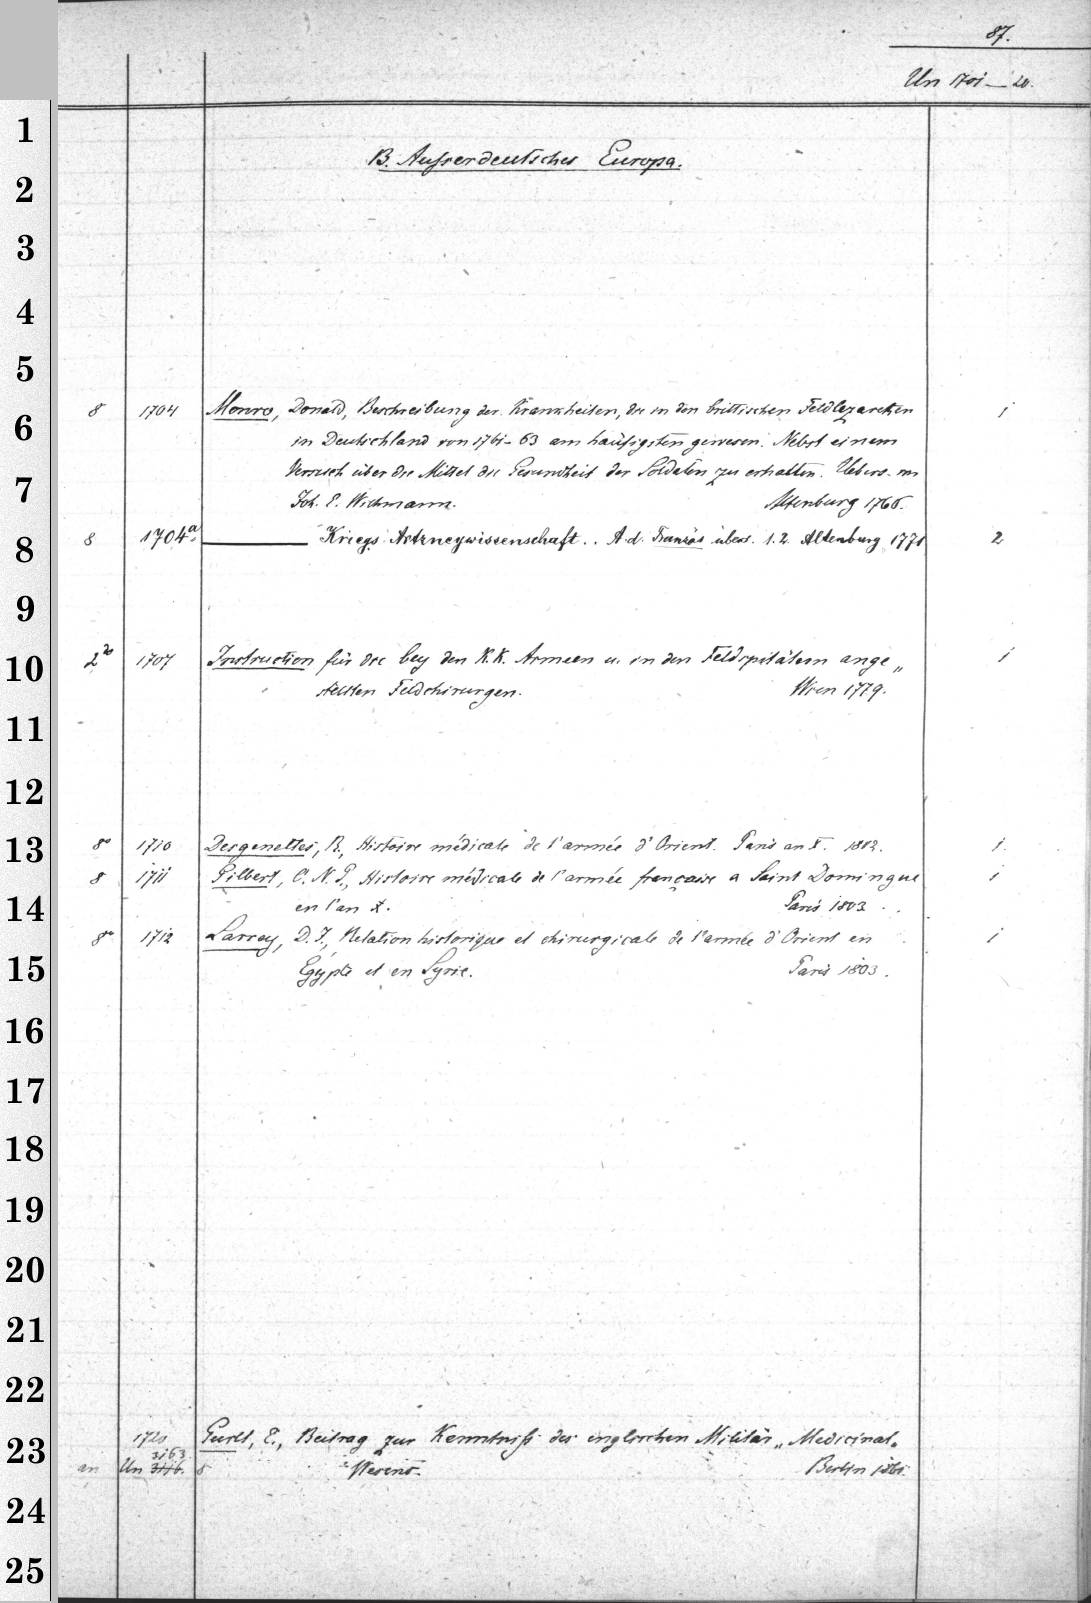 87.
Un 1701—20.
1
B. Ausserdeutsches Europa.
2
3
4
5
8 1704 Monro, Donald, Beschreibung der Krankheiten, die in den brittischen Feldlazarethen 1
6
in Deutschland von 1761-63 am häufigsten gewesen. Nebst einem
Versuch über die Mittel die Gesundheit der Soldaten zu erhalten. Uebers. von
7
Joh. E. Wichmann. Altenburg 1766.
8 1704a. ——— Kriegs Artzneywissenschaft.. A. d. Französ. übers. 1.2. Altenburg 1771 2
8
9
2° 1707 Instruction für die bey den K.K. Armeen u. in den Feldspitälern ange„ 1
10
stellten Feldchirurgen. Wien 1779.
11
12
8° 1710 Desgenettes, R., Histoire médicale de l'armée d'Orient. Paris an X. 1802. 1
13
8 1711 Gilbert, C. N. P., Histoire médicale de l'armée française a Saint Domingue 1
14
en l'an X. Paris 1803.
8° 1712 Larrey, D. J., Relation historique et chirurgicale de l'armée d'Orient en 1
15
Égypte et en Syrie. Paris 1803.
16
17
18
19
20
21
22
1720 Gurlt, E., Beitrag zur Kenntniß des englischen Militär„Medicinal„
23
an Un 3163 Wesens. Berlin 1861.
24
25